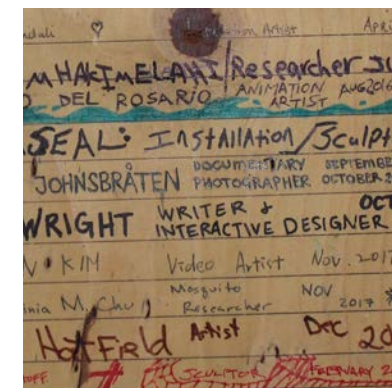 ndali ♡ Artist Apri
MHAKIMELAHI/Researcher JU
DEL ROSARIO ANIMATION ARTIST AUG2016
SEAL: Installation/Sculpt
JOHNSBRÅTEN DOCUMENTARY PHOTOGRAPHER SEPTEMBER OCTOBER 2
WRIGHT WRITER & INTERACTIVE DESIGNER OCT
KIM Video Artist Nov. 2017
inia M. Chu Mosquito Researcher NOV 2017
Hotfield Artist Dec 20
OFF. SCULPTOR FEBRUARY